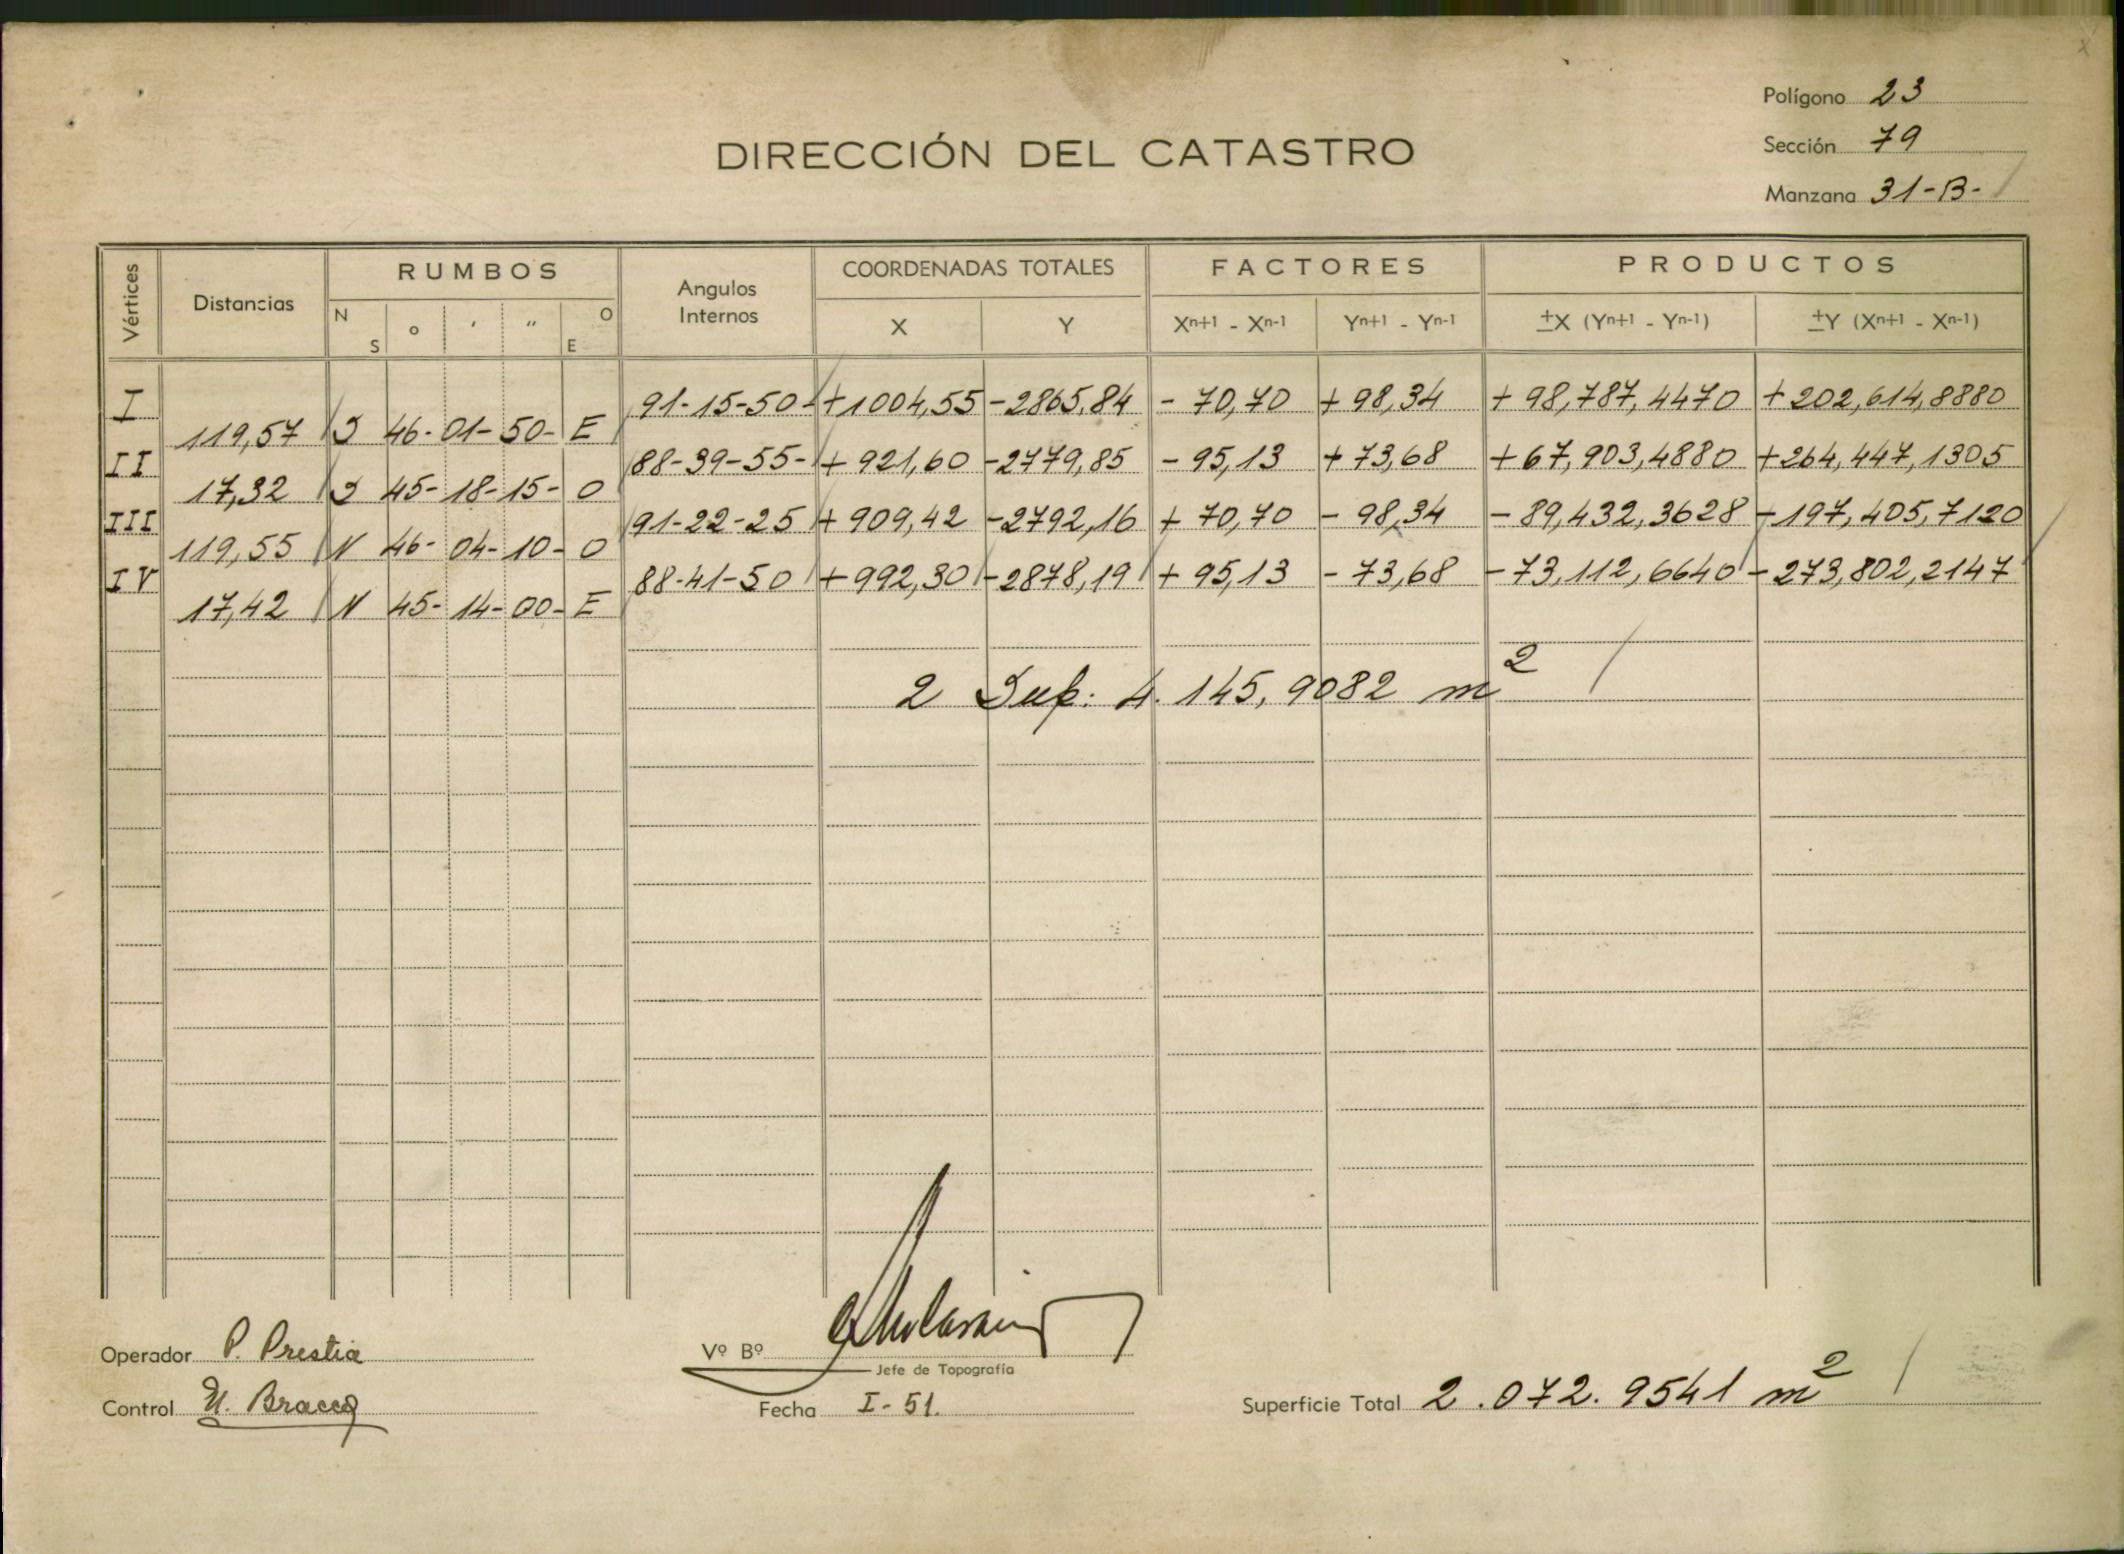 Polígono 23
DIRECCIÓN DEL CATASTRO
Sección 79
Manzana 31-B-
Vértices Distancias RUMBOS Angulos Internos COORDENADAS TOTALES FACTORES PRODUCTOS
N S o ' " O E X Y Xn+1 - Xn-1 Yn+1 - Yn-1 ±X (Yn+1 - Yn-1) ±Y (Xn+1 - Xn-1)
I 91-15-50- +1004,55 -2865,84 - 70,70 + 98,34 + 98,787,4470 + 202,614,8880
119,57 S 46-01-50- E
II 88-39-55- + 921,60 -2779,85 - 95,13 + 73,68 + 67,903,4880 + 264,447,1305
17,32 S 45-18-15- O
III 91-22-25 + 909,42 -2792,16 + 70,70 - 98,34 - 89,432,3628 - 197,405,7120
119,55 N 46-04-10- O
IV 88-41-50 + 992,30 -2878,19 + 95,13 - 73,68 - 73,112,6640 - 273,802,2147
17,42 N 45-14-00- E
2 Sup: 4.145,9082 m2
Operador P. Prestia
Vº Bº
Jefe de Topografía
Control Bracco
Fecha I-51.
Superficie Total 2.072.9541 m2